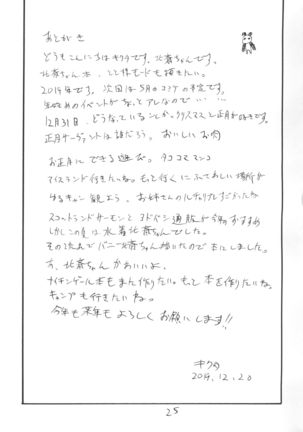 あとがき
どうもこんにちはキクタです。北斎ちゃんです。
北斎ちゃん本、とても描きたい。
2019年です。次回は5月のコミケの予定です。
年始めのイベントがないとアレなので‥‥‥
12月31日、どうなっているんじゃ。クリスマスと正月が好きです。
正月サーヴァントは誰だろう。おいしいお肉
お正月にできる遊び。タコ コマ
アイスランド行きたいね。もっと行くにふさわしい場所が
ゆるキャン観よう。お姉さんの
スコットランドサーモンとヨドバシ通販が今年のおすすめ
しかしこの夏は水着北斎ちゃんでした。
その流れでバニー北斎ちゃん描いたので本にしました。
あ、北斎ちゃんかわいいよ。
ナイチンゲール本もまた作りたい。もっと本を作りたいね。
キャンプも行きたいね。
今年も来年もよろしくお願いします!!
キクタ
2019.12.20
25